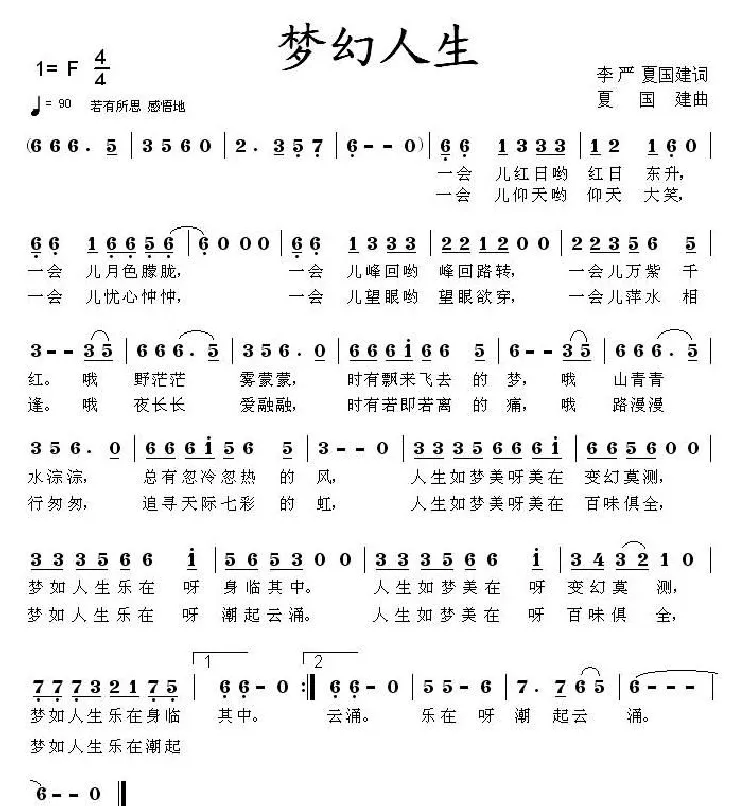 梦幻人生
1= F 4/4
李严 夏国建词
♩= 90 若有所思 感悟地
夏 国 建曲
(6 6 6. 5 | 3 5 6 0 | 2. 3 5 7 | 6 - - 0) | 6 6 1 3 3 3 | 1 2 1 6 0 |
一会 儿红日哟 红日 东升,
一会 儿仰天哟 仰天 大笑,
6 6 1 6 6 5 6 | 6 0 0 0 | 6 6 1 3 3 3 | 2 2 1 2 0 0 | 2 2 3 5 6 5 |
一会 儿月色朦胧, 一会 儿峰回哟 峰回路转, 一会儿万紫 千
一会 儿忧心忡忡, 一会 儿望眼哟 望眼欲穿, 一会儿萍水 相
3 - - 3 5 | 6 6 6. 5 | 3 5 6. 0 | 6 6 6 i 6 6 5 | 6 - - 3 5 | 6 6 6. 5 |
红。 哦 野茫茫 雾蒙蒙, 时有飘来飞去 的 梦, 哦 山青青
逢。 哦 夜长长 爱融融, 时有若即若离 的 痛, 哦 路漫漫
3 5 6. 0 | 6 6 6 i 5 6 5 | 3 - - 0 | 3 3 3 5 6 6 6 i | 6 6 5 6 0 0 |
水淙淙, 总有忽冷忽热 的 风, 人生如梦美呀美在 变幻莫测,
行匆匆, 追寻天际七彩 的 虹, 人生如梦美呀美在 百味俱全,
3 3 3 5 6 6 i | 5 6 5 3 0 0 | 3 3 3 5 6 6 i | 3 4 3 2 1 0 |
梦如人生乐在 呀 身临其中。 人生如梦美在 呀 变幻莫 测,
梦如人生乐在 呀 潮起云涌。 人生如梦美在 呀 百味俱 全,
1 2
7 7 7 3 2 1 7 5 | 6 6 - 0 :| 6 6 - 0 | 5 5 - 6 | 7. 7 6 5 | 6 - - - |
梦如人生乐在身临 其中。 云涌。 乐在 呀 潮 起云 涌。
梦如人生乐在潮起
6 - - 0 |